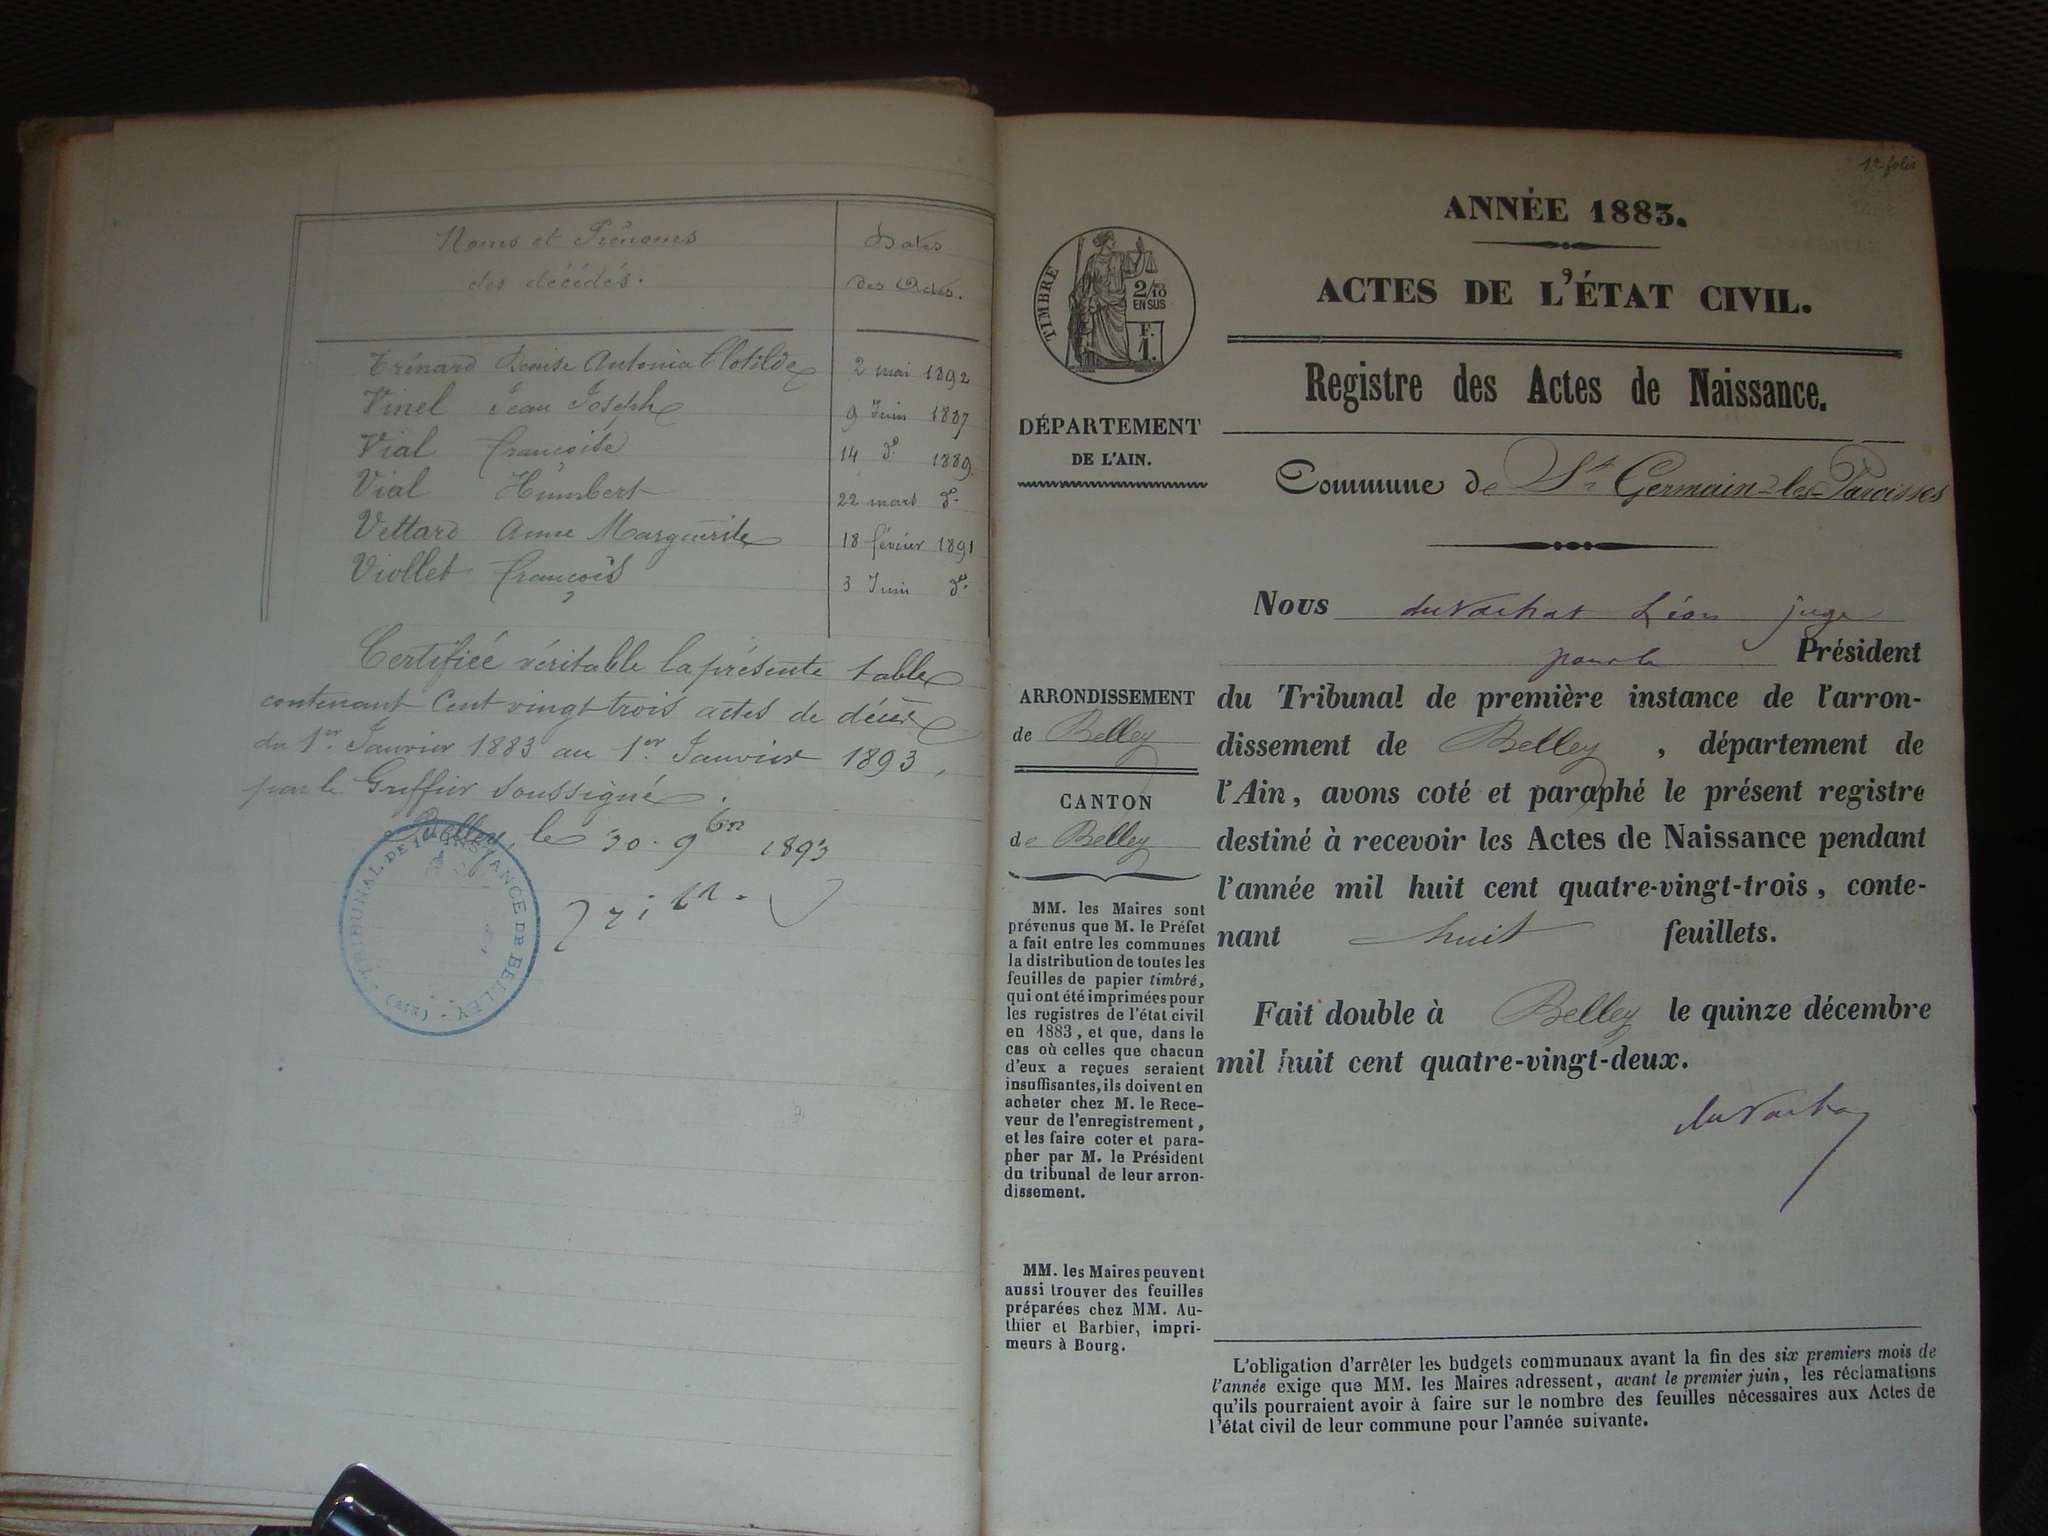 Noms et Prénoms
des décédés.
Dates
des Actes.
Trénard Denise Antonia Clotilde 2 mai 1892
Vinel Jean Joseph 9 Juin 1887
Vial Françoise 14 do 1889
Vial Humbert 22 mars do
Vettard Anne Marguerite 18 février 1891
Viollet François 3 Juin do
Certifiée véritable la présente table
contenant Cent vingt trois actes de décès
du 1er Janvier 1883 au 1er Janvier 1893,
par le Greffier soussigné.
Belley, le 30 9bre 1893
TRIBUNAL DE 1ERE INSTANCE DE BELLEY (AIN)
1er folio
ANNÉE 1883.
ACTES DE L'ÉTAT CIVIL.
TIMBRE
2/10
EN SUS
F.
1.
Registre des Actes de Naissance.
DÉPARTEMENT
DE L'AIN.
Commune de St Germain-les-Paroisses
Nous du Vachat Léon juge
pour le Président
du Tribunal de première instance de l'arron-
dissement de Belley, département de
l'Ain, avons coté et paraphé le présent registre
destiné à recevoir les Actes de Naissance pendant
l'année mil huit cent quatre-vingt-trois, conte-
nant huit feuillets.
Fait double à Belley le quinze décembre
mil huit cent quatre-vingt-deux.
du Vachat
ARRONDISSEMENT
de Belley
CANTON
de Belley
MM. les Maires sont
prévenus que M. le Préfet
a fait entre les communes
la distribution de toutes les
feuilles de papier timbré,
qui ont été imprimées pour
les registres de l'état civil
en 1883, et que, dans le
cas où celles que chacun
d'eux a reçues seraient
insuffisantes, ils doivent en
acheter chez M. le Rece-
veur de l'enregistrement,
et les faire coter et para-
pher par M. le Président
du tribunal de leur arron-
dissement.
MM. les Maires peuvent
aussi trouver des feuilles
préparées chez MM. Au-
thier et Barbier, impri-
meurs à Bourg.
L'obligation d'arrêter les budgets communaux avant la fin des six premiers mois de
l'année exige que MM. les Maires adressent, avant le premier juin, les réclamations
qu'ils pourraient avoir à faire sur le nombre des feuilles nécessaires aux Actes de
l'état civil de leur commune pour l'année suivante.